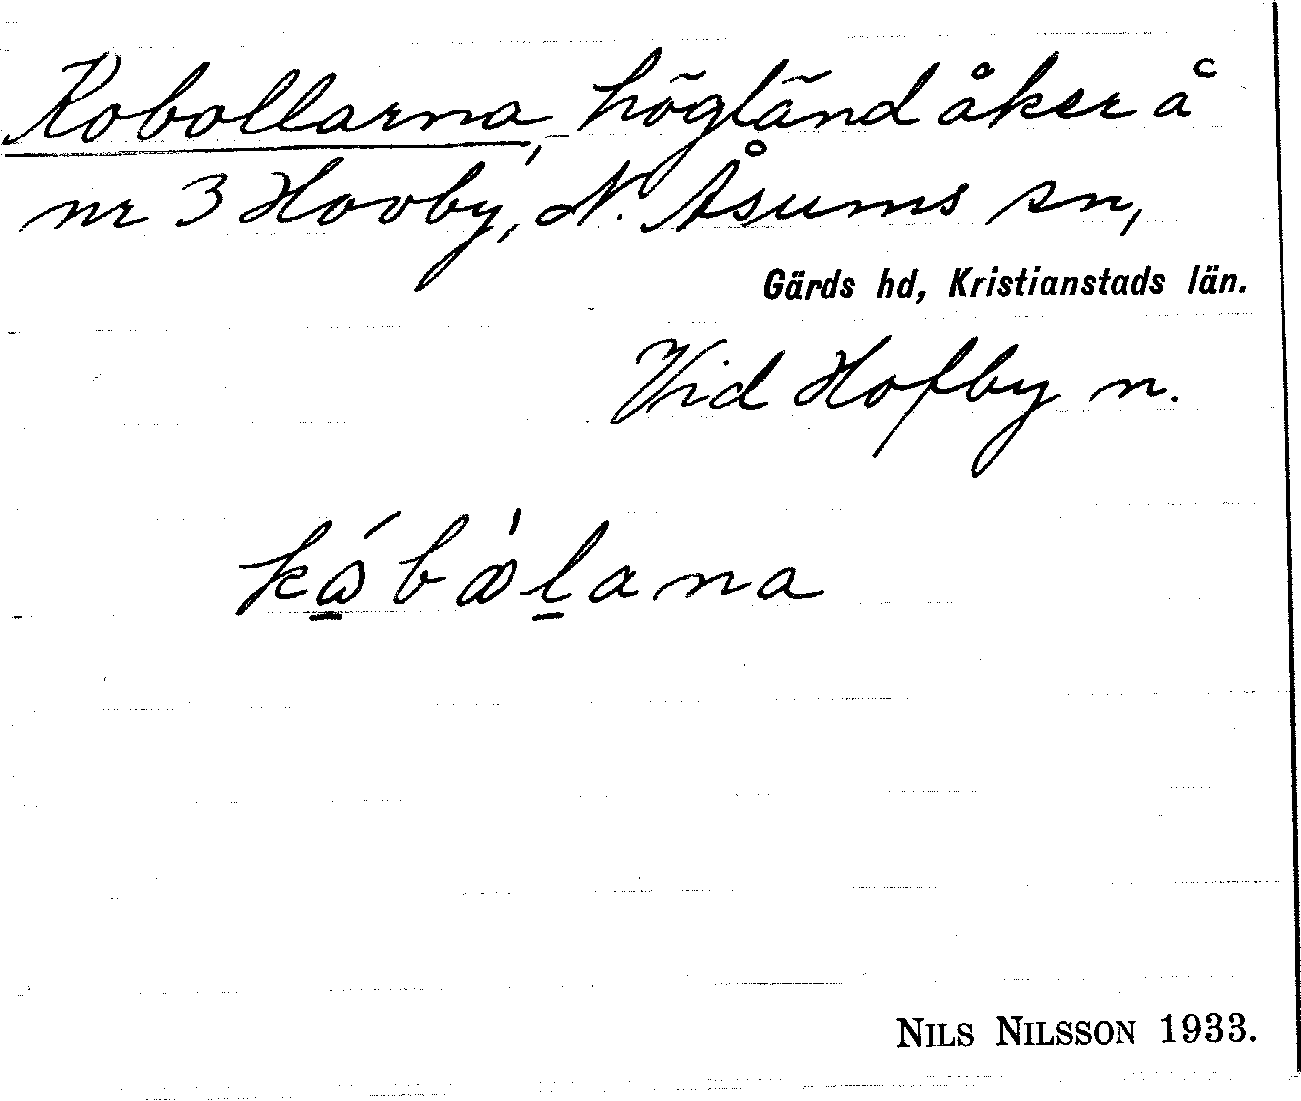 Kobollarna, högländ åker å
nr 3 Hovby, N. Åsums sn,
Gärds hd, Kristianstads län.
Vid Hofby n.
NILS NILSSON 1933.